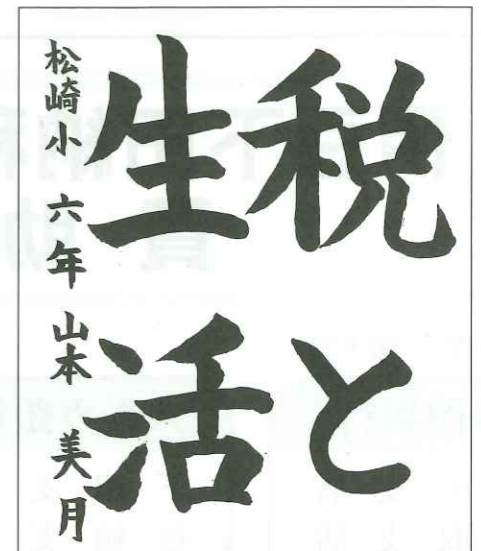 税と
生活
松崎小 六年 山本 美月